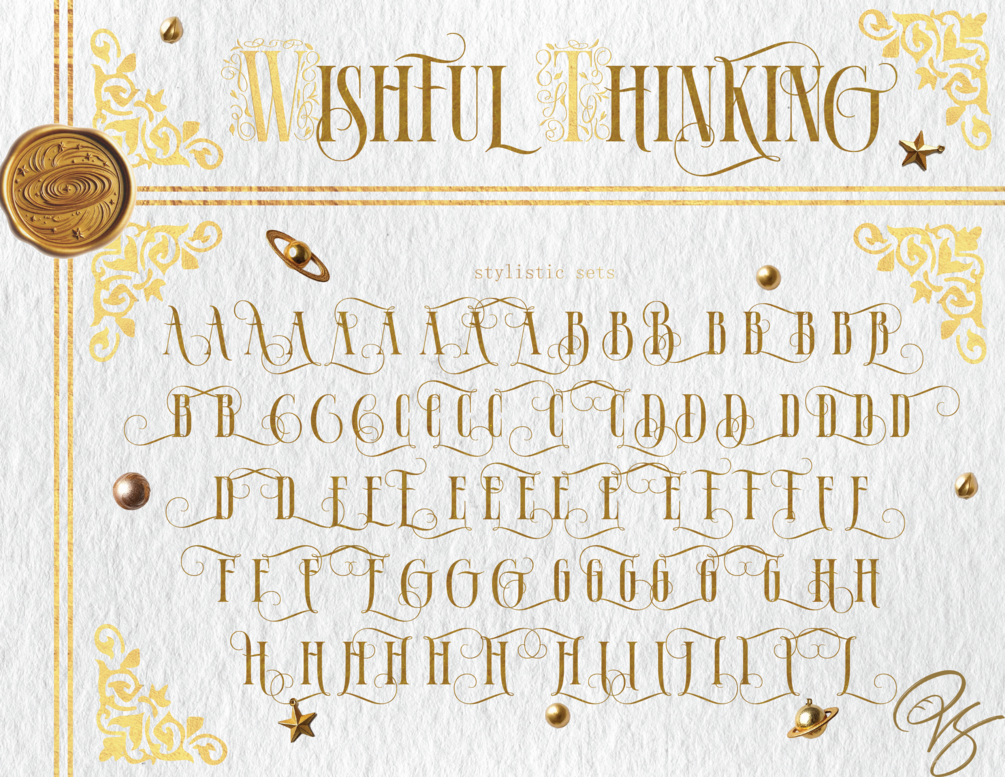 WISHFUL THINKING
stylistic sets
A A A A A A A A A B B B B B B B B
B B C C C C C C C C C D D D D D D D
D D E E E E E E E E E F F F F F
F F F F G G G G G G G G G H H
H H H H H H H I I I I I I I I